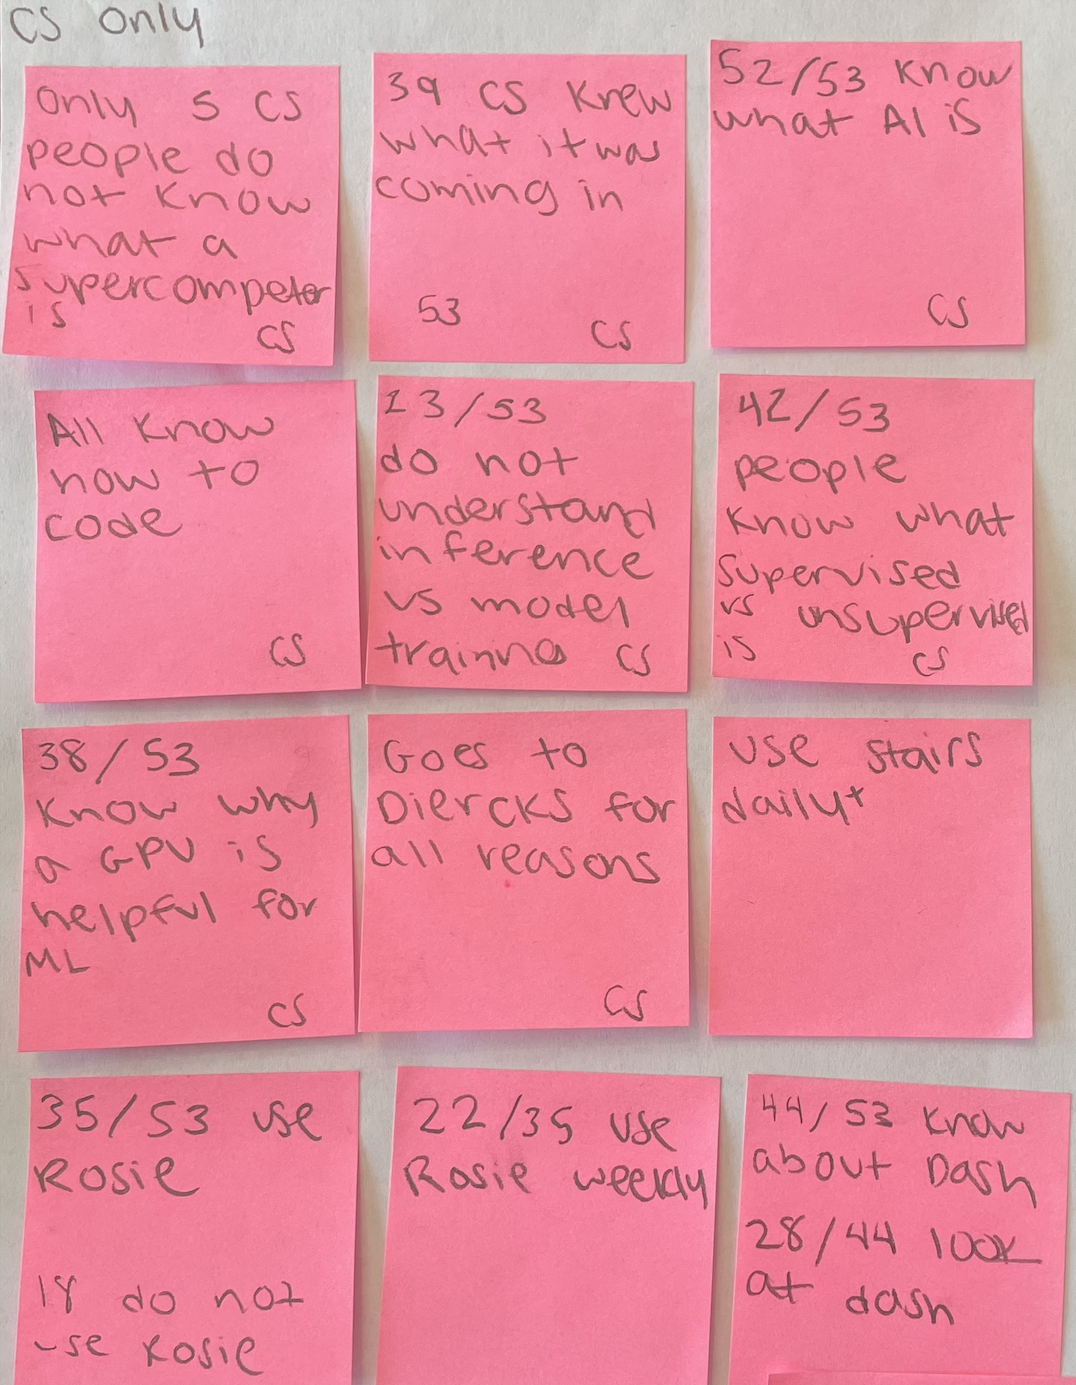 CS only
Only 5 CS
people do
not know
what a
supercompeter
is
CS
39 CS knew
what it was
coming in
53
CS
52/53 know
what AI is
CS
All know
how to
code
CS
13/53
do not
understand
inference
vs model
training
CS
42/53
people
know what
supervised
vs unsupervised
is
CS
38/53
know why
a GPU is
helpful for
ML
CS
Goes to
Diercks for
all reasons
CS
use stairs
daily+
35/53 use
Rosie
18 do not
use Rosie
22/35 use
Rosie weekly
44/53 know
about Dash
28/44 look
at dash